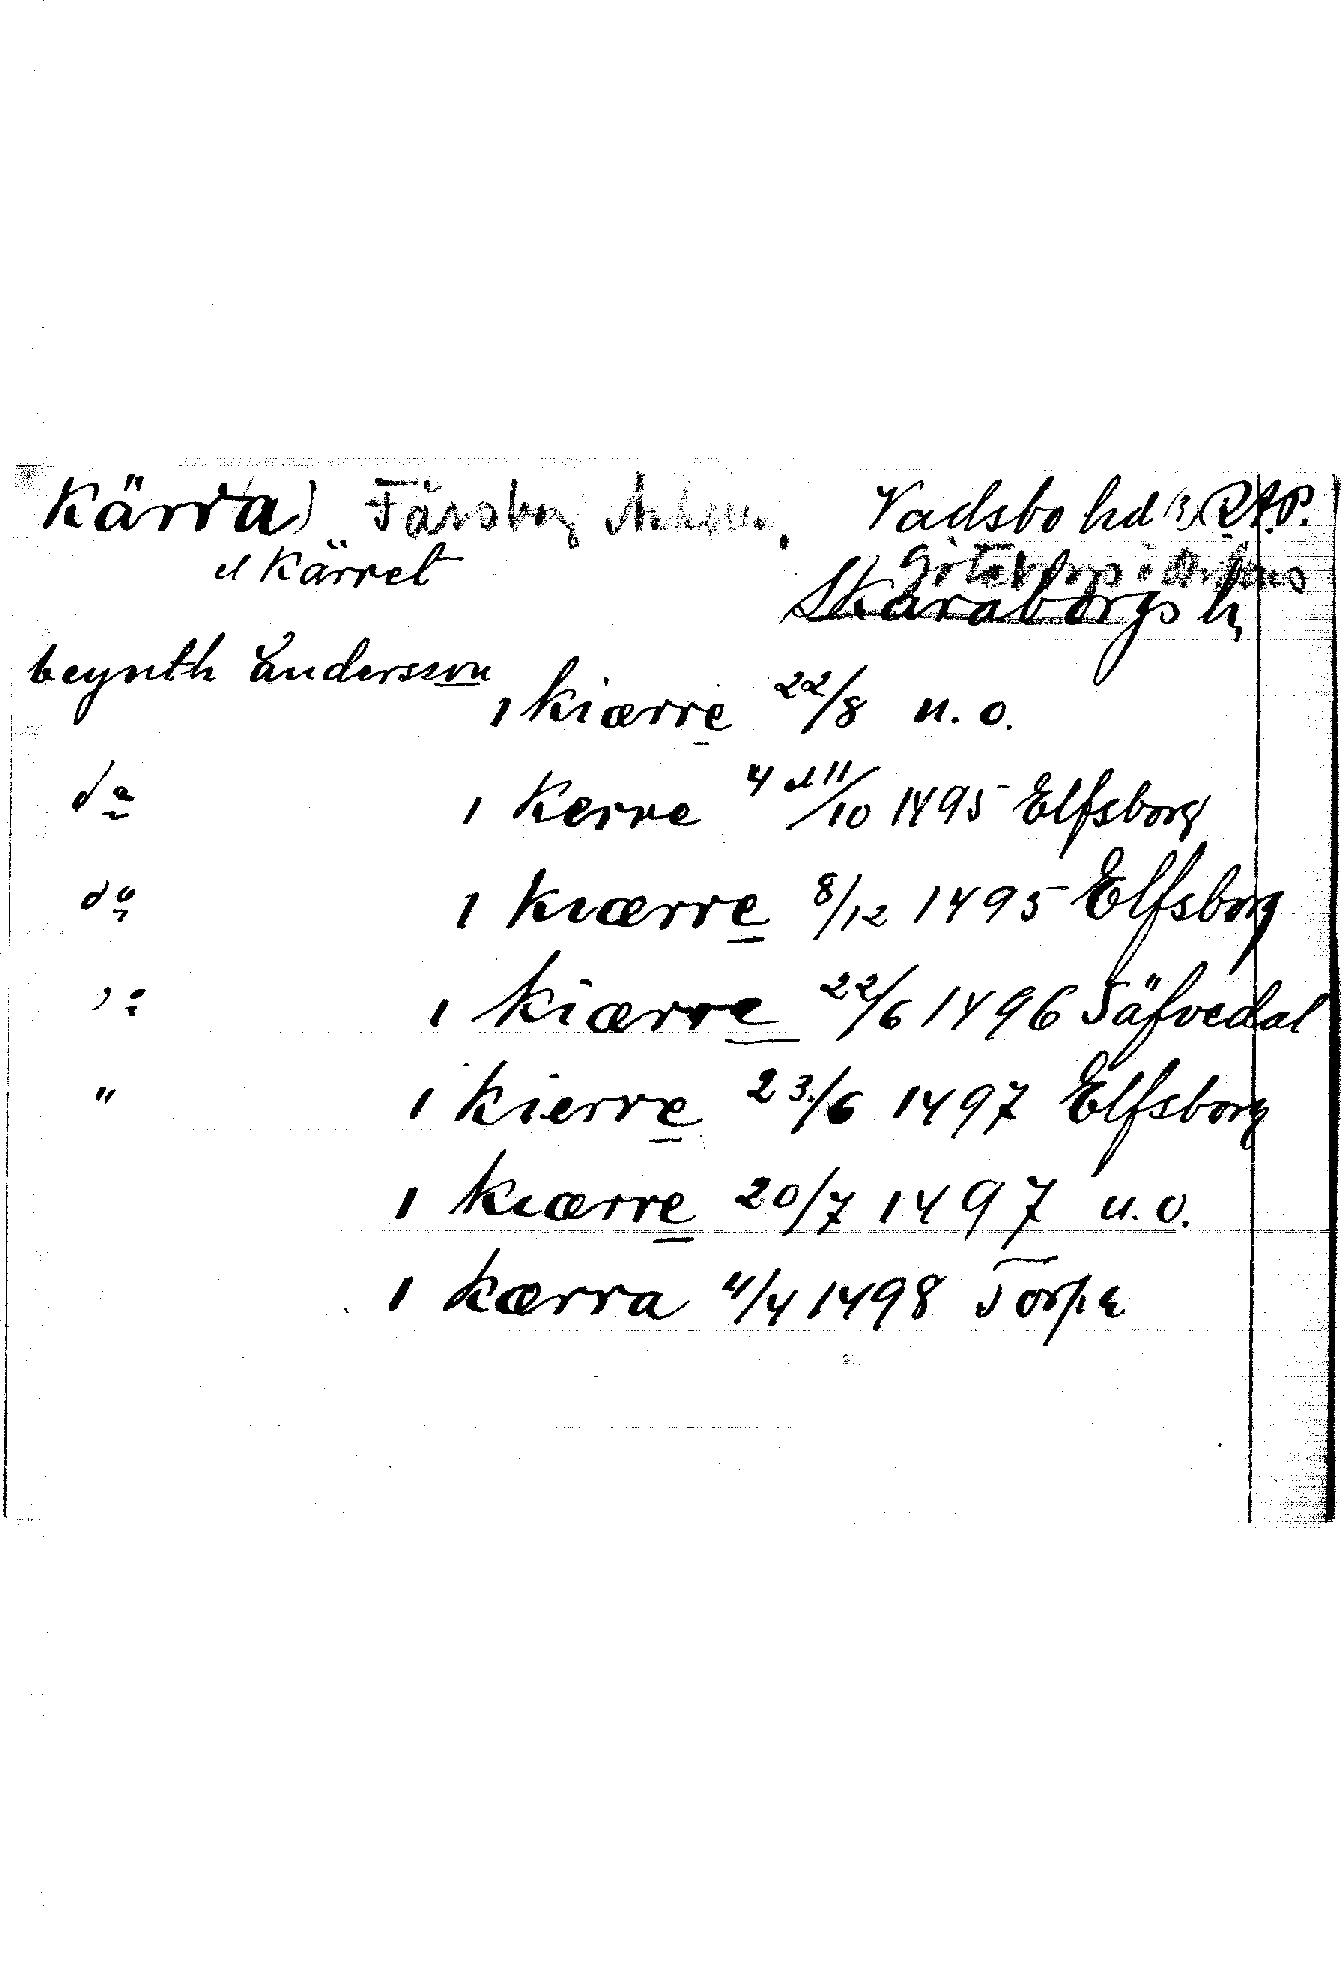 Kärra) Vadsbo hd (?) (RAP.
el Kärret
Skaraborgs l.
beynth Andersson
1 kiærre 22/8 u. o.
do 1 kerre 4 el 11/10 1495 Elfsborg
do 1 kiærre 8/12 1495 Elfsborg
do 1 kiærre 22/6 1496 Säfvedal
" 1 kierre 23/6 1497 Elfsborg
1 kiærre 20/7 1497 u. o.
1 kærra 4/4 1498 Torpa